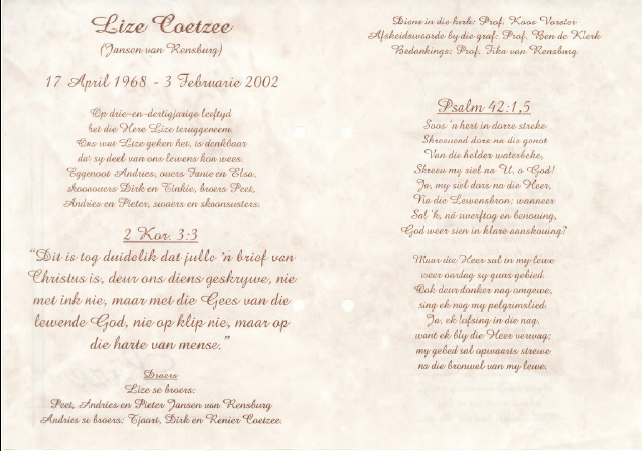 Lize Coetzee
(Jansen van Rensburg)
17 April 1968 - 3 Februarie 2002
Op drie-en-dertigjarige leeftyd
het die Here Lize teruggeneem.
Ons wat Lize geken het, is dankbaar
dat sy deel van ons lewens kon wees.
Eggenoot Andries, ouers Fanie en Elsa,
skoonouers Dirk en Tinkie, broers Peet,
Andries en Pieter, swaers en skoonsusters.
2 Kor. 3:3
"Dit is tog duidelik dat julle 'n brief van
Christus is, deur ons diens geskrywe, nie
met ink nie, maar met die Gees van die
lewende God, nie op klip nie, maar op
die harte van mense."
Draers
Lize se broers:
Peet, Andries en Pieter Jansen van Rensburg
Andries se broers: Tjaart, Dirk en Renier Coetzee.
Diens in die kerk: Prof. Koos Vorster
Afskeidswoorde by die graf: Prof. Ben de Klerk
Bedankings: Prof. Fika van Rensburg
Psalm 42:1,5
Soos 'n hert in dorre streke
Skreeuend dors na die genot
Van die helder waterbeke,
Skreeu my siel na U, o God!
Ja, my siel dors na die Heer,
Na die Lewensbron; wanneer
Sal 'k, ná swerftog en benouing,
God weer sien in klare aanskouing?
Maar die Heer sal in my lewe
weer oordag sy guns gebied.
Ook deur donker nag omgewe,
sing ek nog my pelgrimslied.
Ja, ek lofsing in die nag,
want ek bly die Heer verwag;
my gebed sal opwaarts strewe
na die bronwel van my lewe.